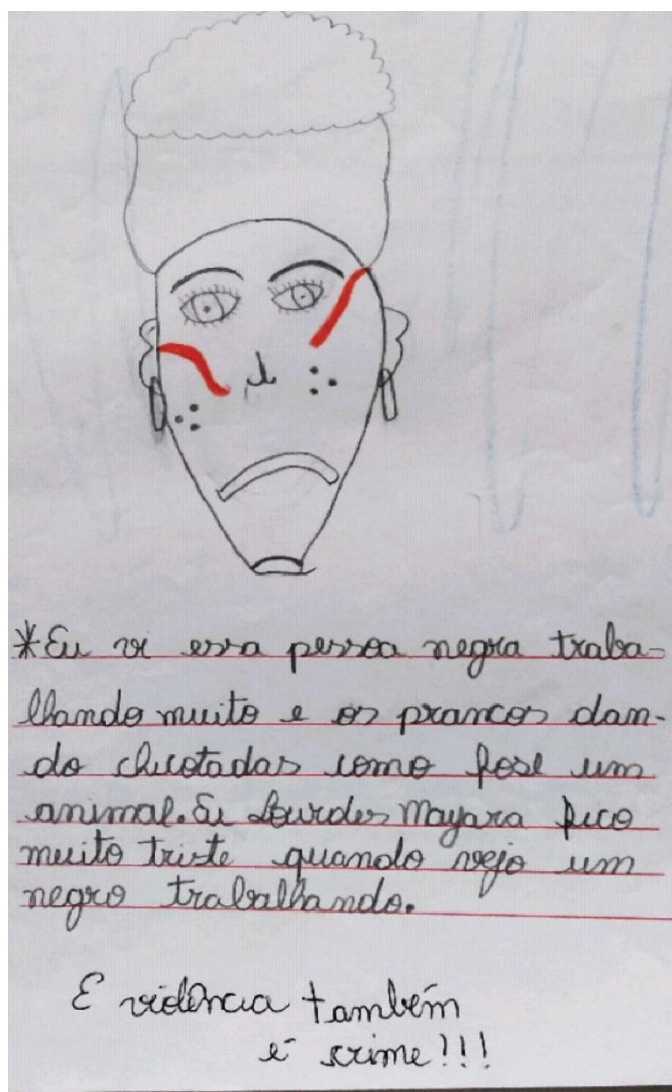 *Eu vi essa pessoa negra traba-
lhando muito e os prancos dan-
do chicotadas como fose um
animal. Eu Lourdes Mayara fico
muito triste quando vejo um
negro trabalhando.
E violência também
é crime!!!